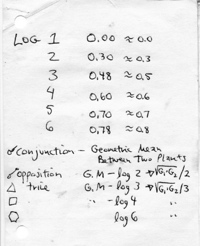 LOG 1 0.00 ≈ 0.0
2 0.30 ≈ 0.3
3 0.48 ≈ 0.5
4 0.60 ≈ 0.6
5 0.70 ≈ 0.7
6 0.78 ≈ 0.8
☌ Conjunction - Geometric Mean
Between Two Planets
☍ opposition G.M - log 2 → √G₁·G₂/2
△ trine G.M - log 3 → √G₁·G₂/3
□ " - log 4 "
⬡ log 6 "